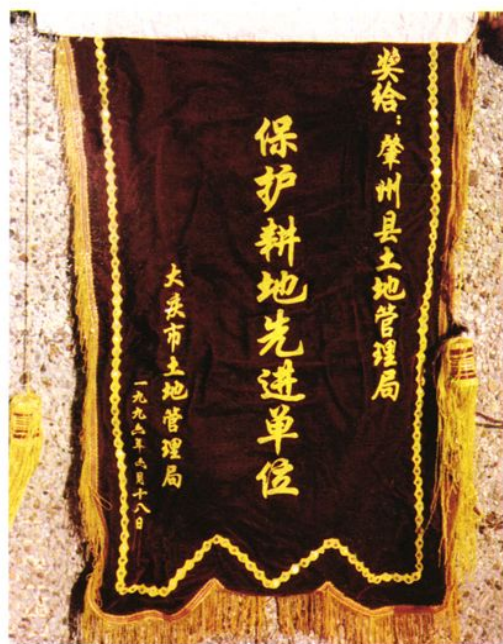 奖给：肇州县土地管理局
保护耕地先进单位
大庆市土地管理局
一九九六年六月十八日